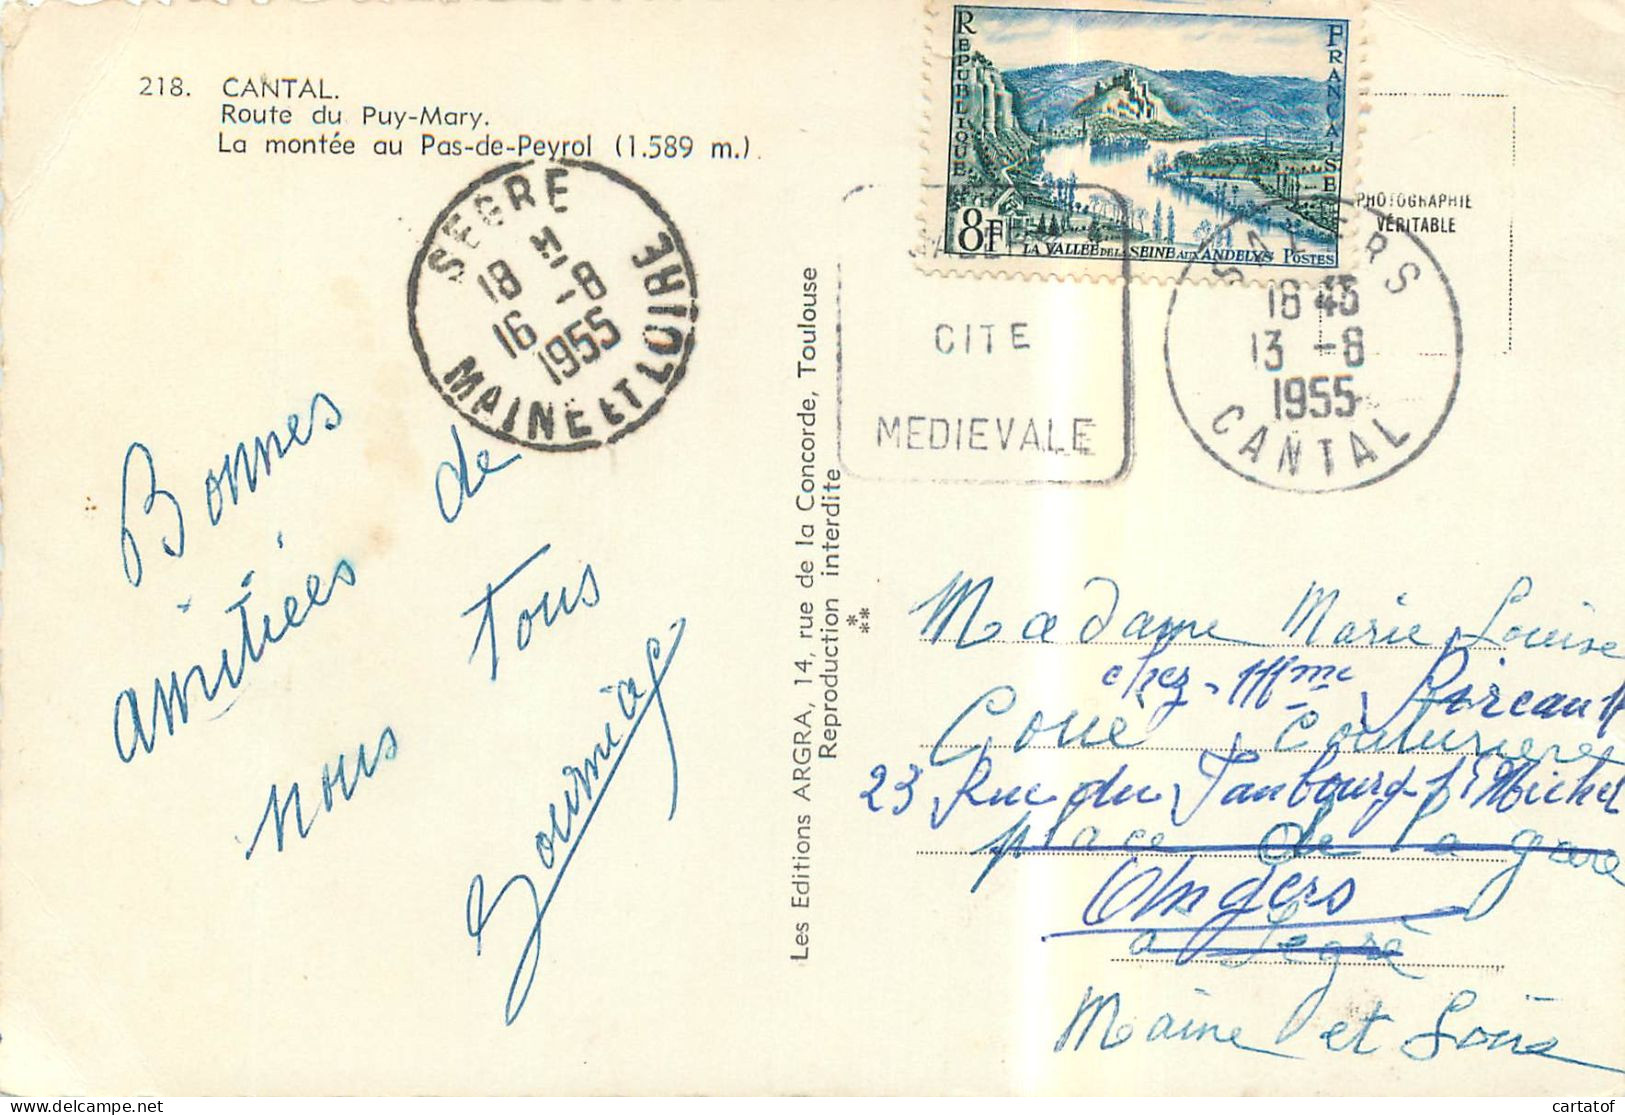 218. CANTAL.
Route du Puy-Mary.
La montée au Pas-de-Peyrol (1.589 m.)
SEGRE
18 H
16 -8
1955
MAINE ET LOIRE
Bonnes
amitiées de
nous tous
Les Editions ARGRA, 14, rue de la Concorde, Toulouse
Reproduction interdite
REPUBLIQUE FRANCAISE
8F
LA VALLÉE DE LA SEINE AUX ANDELYS POSTES
CITE
MEDIEVALE
18 45
13 -8
1955
CANTAL
PHOTOGRAPHIE
VÉRITABLE
Madame Marie Louise
chez Mme
Coué Couturiere
23 Rue du Faubourg St Michel
place de la gare
Angers
a Segré
Maine et Loire
cartatof